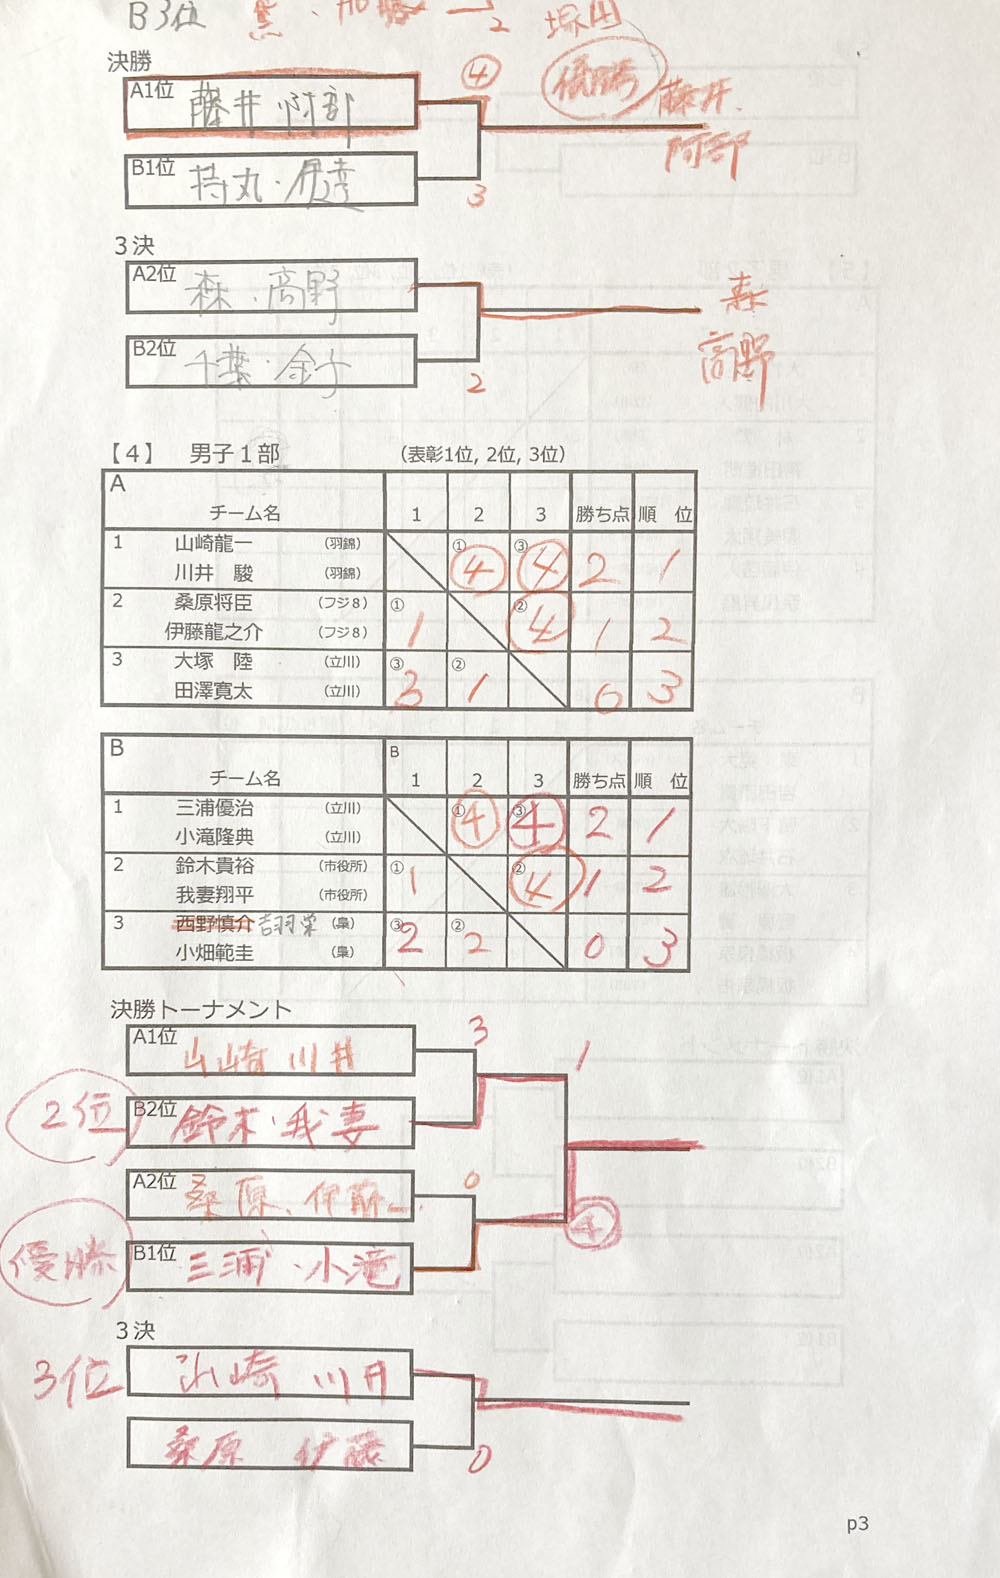 B3位 塚田
決勝
A1位 藤井 阿部 ④ 優勝 藤井
阿部
B1位 持丸・伊達 3
３決
A2位 森・高野 森
高野
B2位 千葉・金子 2
【4】 男子１部 (表彰1位, 2位, 3位)
A
チーム名 1 2 3 勝ち点 順 位
1 山崎龍一 (羽錦) ① 4 ③ 4 2 1
川井 駿 (羽錦)
2 桑原将臣 (フジ８) ① 1 ② 4 1 2
伊藤龍之介 (フジ８)
3 大塚 陸 (立川) ③ 3 ② 1 0 3
田澤寛太 (立川)
B B
チーム名 1 2 3 勝ち点 順 位
1 三浦優治 (立川) ① 4 ③ 4 2 1
小滝隆典 (立川)
2 鈴木貴裕 (市役所) ① 1 ② 4 1 2
我妻翔平 (市役所)
3 西野慎介 (梟) ③ 2 ② 2 0 3
小畑範圭 (梟)
決勝トーナメント
A1位 山崎 川井 3 1
2位 B2位 鈴木・我妻
A2位 桑原、伊藤 0
④
優勝 B1位 三浦・小滝
３決
3位 山崎 川井
桑原 伊藤 0
p3